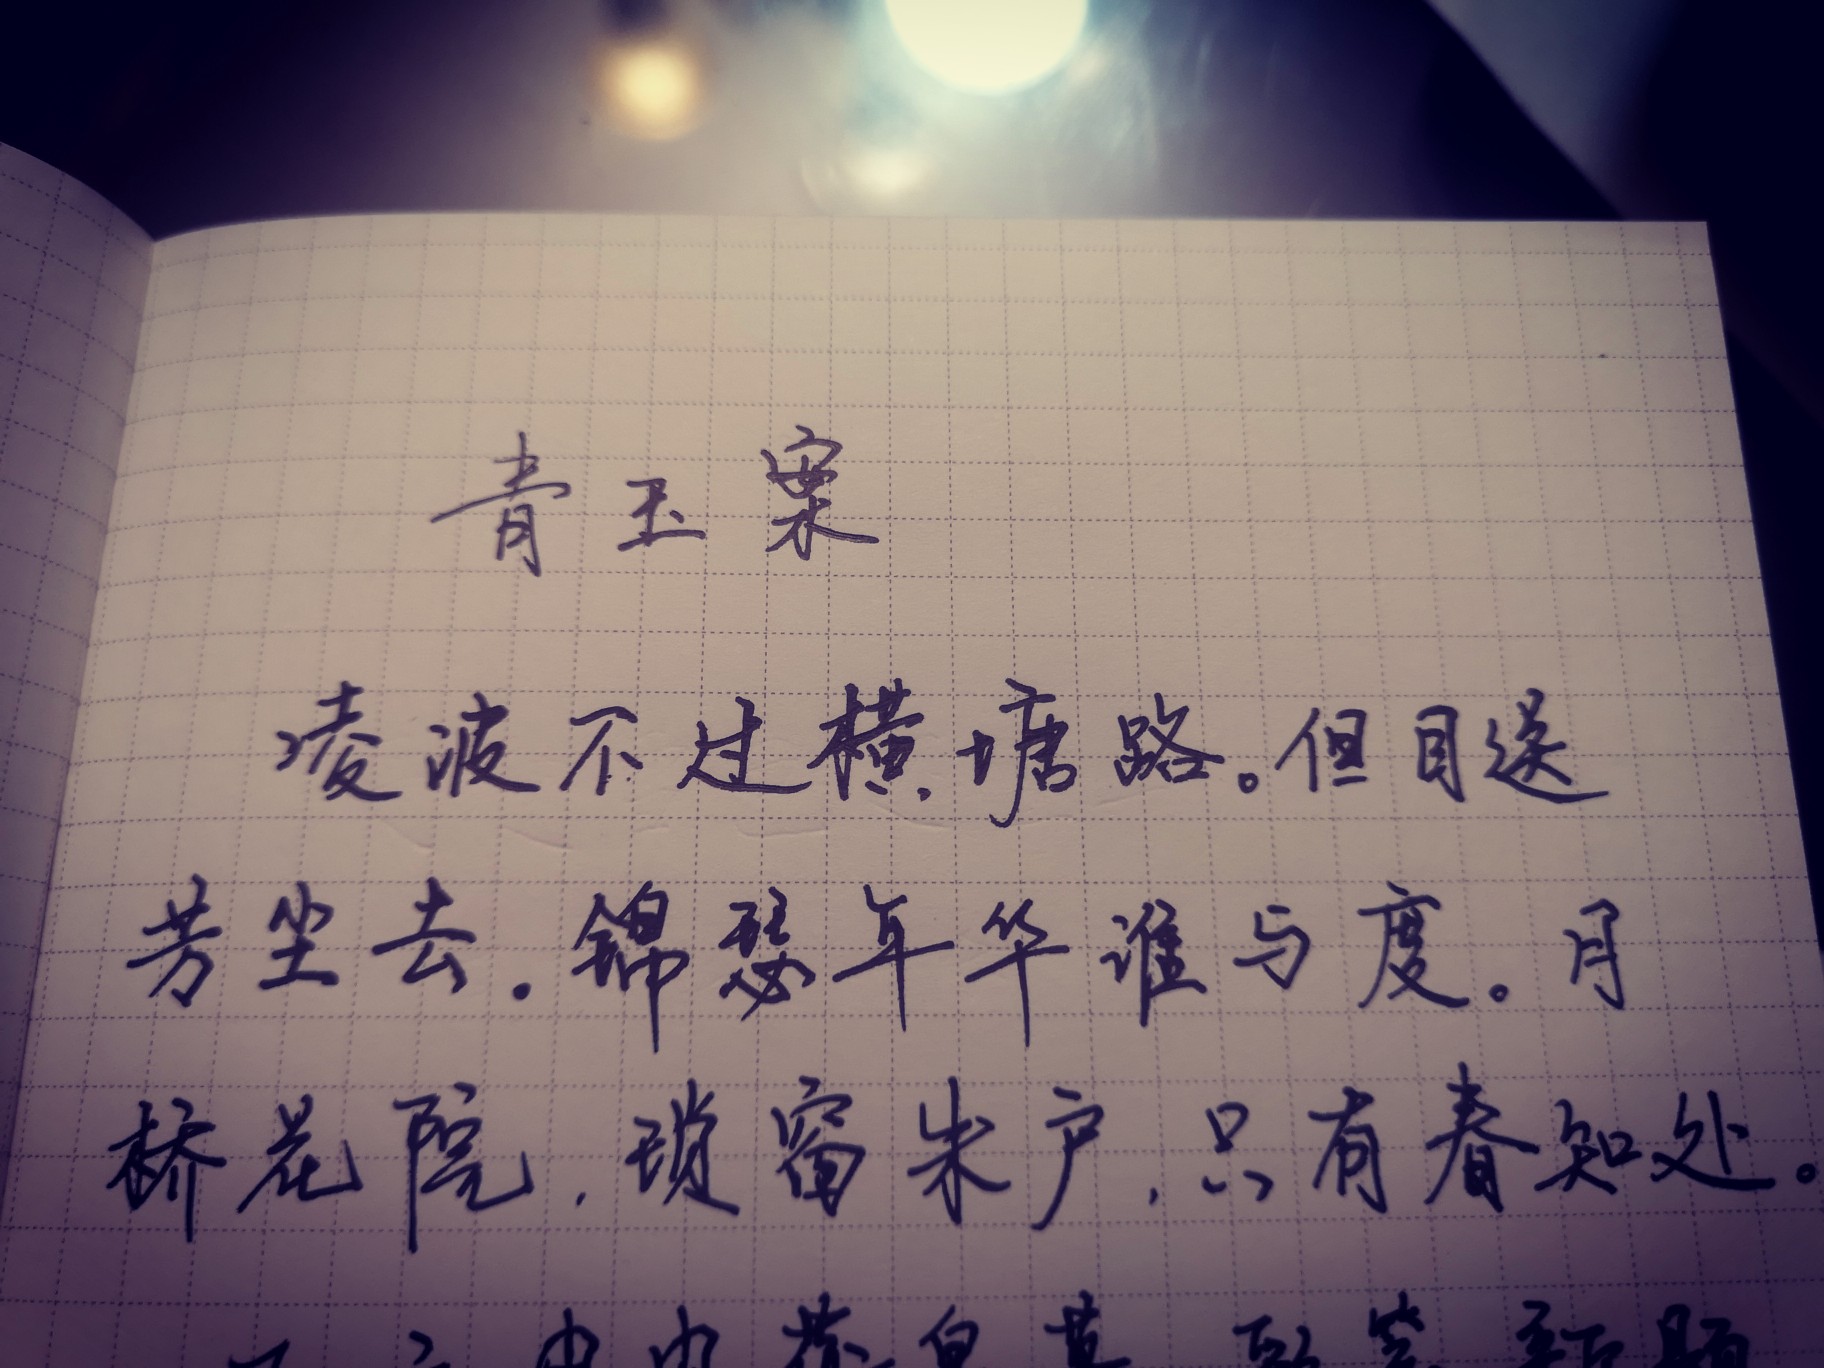 青玉案
凌波不过横塘路。但目送
芳尘去．锦瑟年华谁与度。月
桥花院，琐窗朱户，只有春知处。